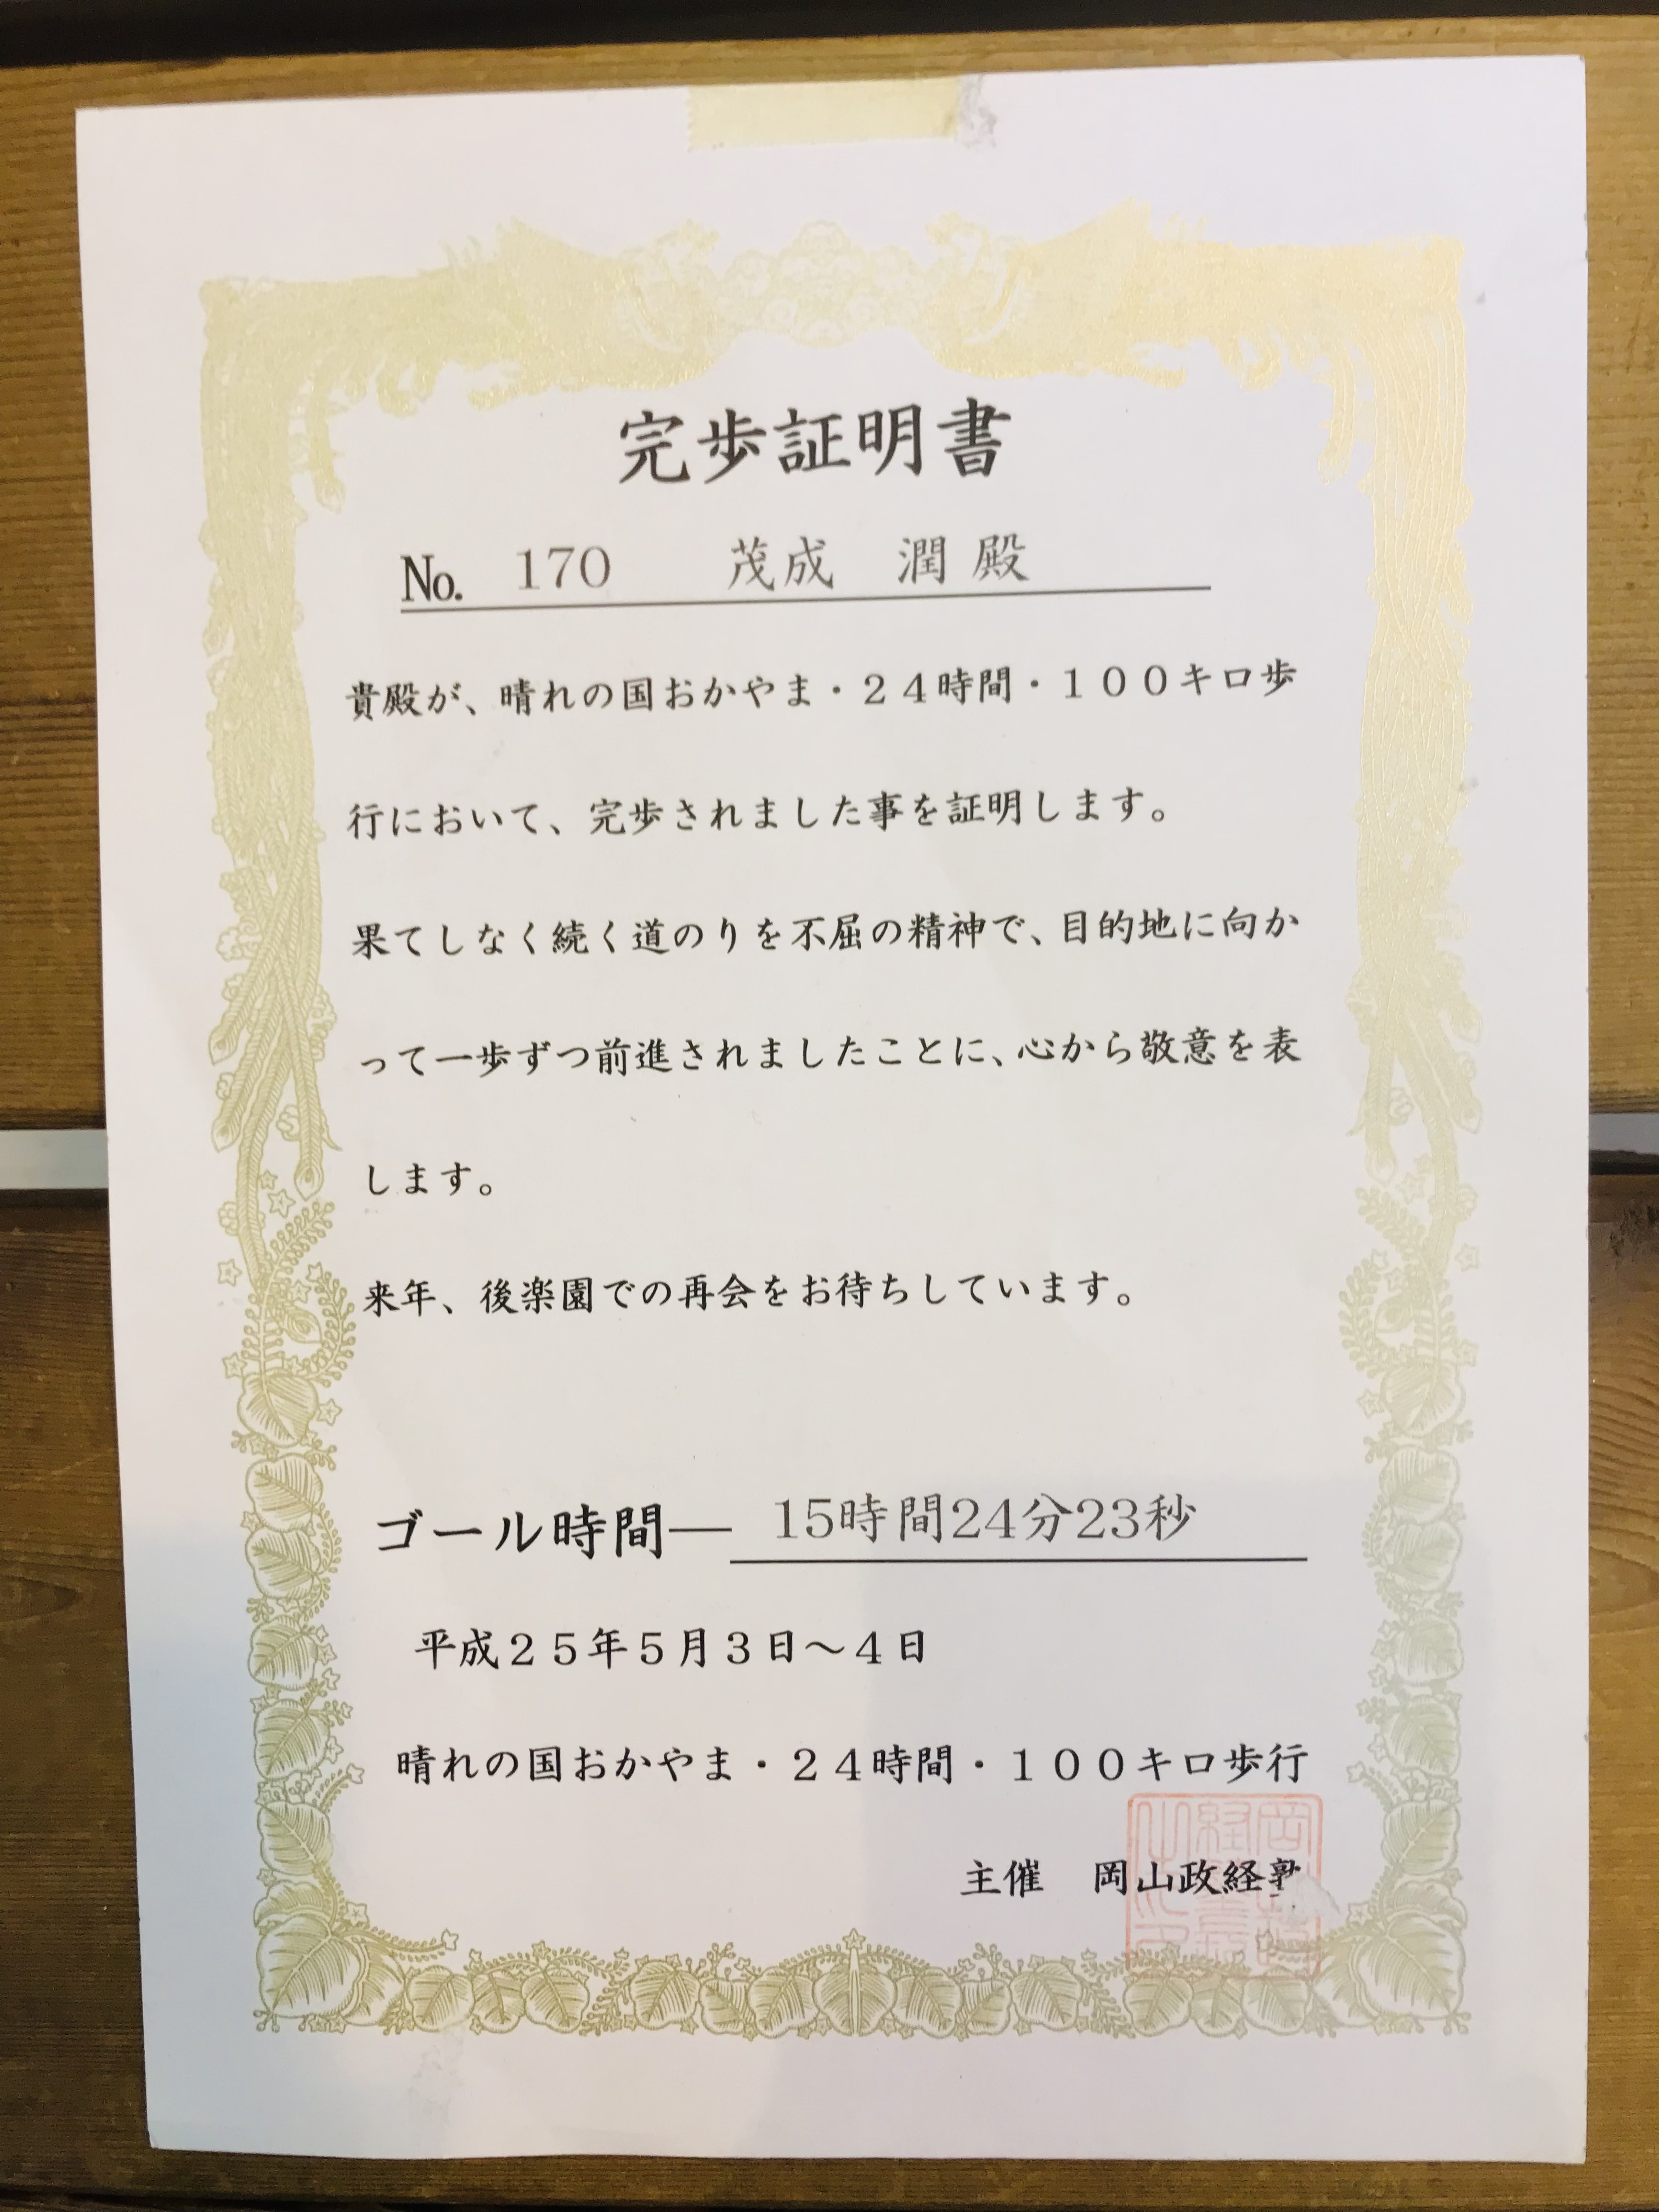 完歩証明書
No. 170 茂成 潤 殿
貴殿が、晴れの国おかやま・24時間・100キロ歩
行において、完歩されました事を証明します。
果てしなく続く道のりを不屈の精神で、目的地に向か
って一歩ずつ前進されましたことに、心から敬意を表
します。
来年、後楽園での再会をお待ちしています。
ゴール時間― 15時間24分23秒
平成25年5月3日～4日
晴れの国おかやま・24時間・100キロ歩行
主催 岡山政経塾